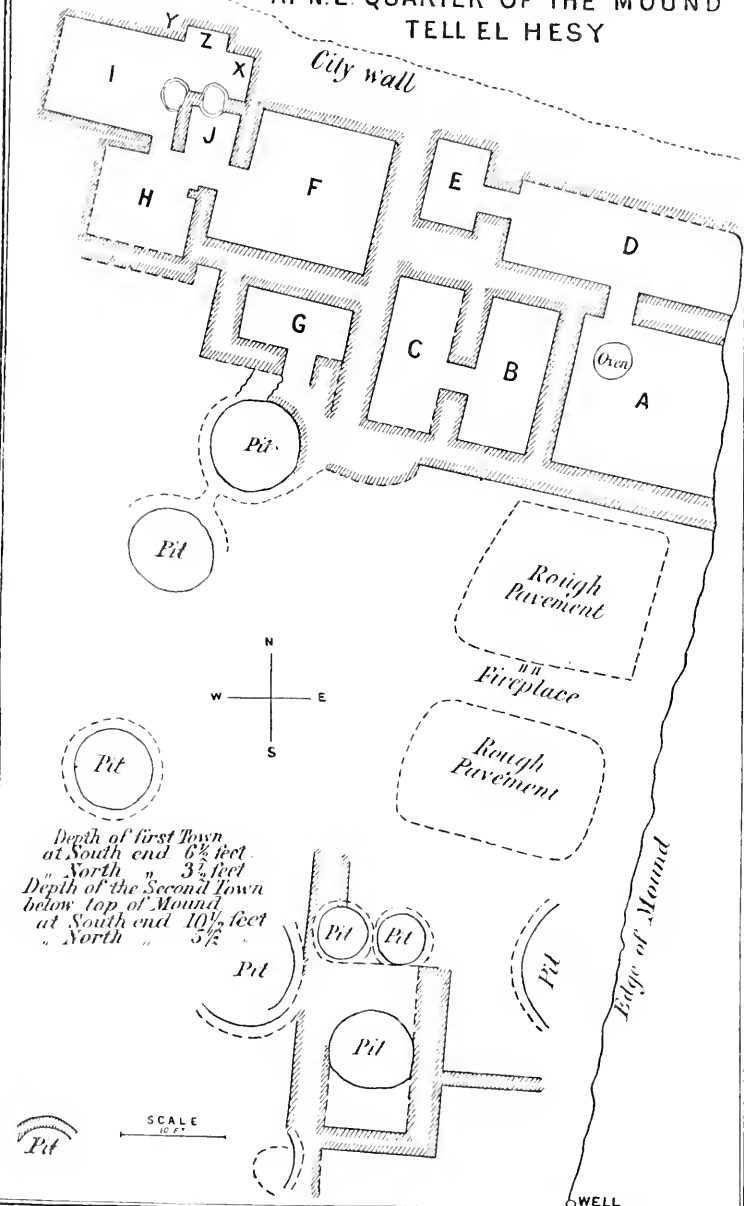 AT N.E. QUARTER OF THE MOUND
TELL EL HESY
City wall
Y
Z
X
I
J
H
F
E
D
G
C
B
A
Oven
Pit
Pit
Rough
Pavement
Fireplace
Rough
Pavement
N
W E
S
Pit
Depth of first Town
at South end 6½ feet
„ North „ 3½ feet
Depth of the Second Town
below top of Mound
at South end 10½ feet
„ North „ 5½ „
Pit
Pit
Pit
Pit
Pit
Edge of Mound
Pit
SCALE
10 FT
WELL